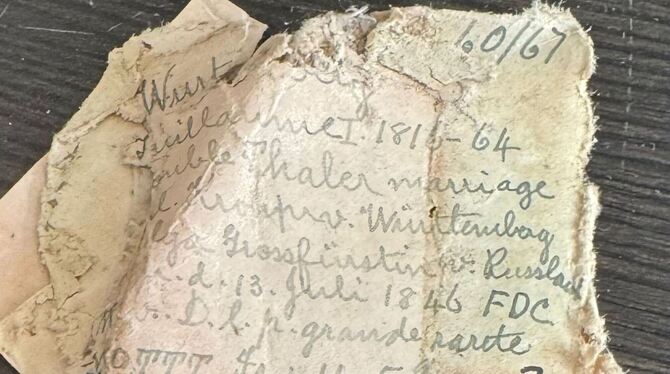 60/67
Wurt g
Guillaume I 1816-64
Double Thaler marriage
d. Kronprv. Würtembag
Olga Grossfürstin v. Russland
d. 13. Juli 1846 FDC
D. l. p. grande rarete